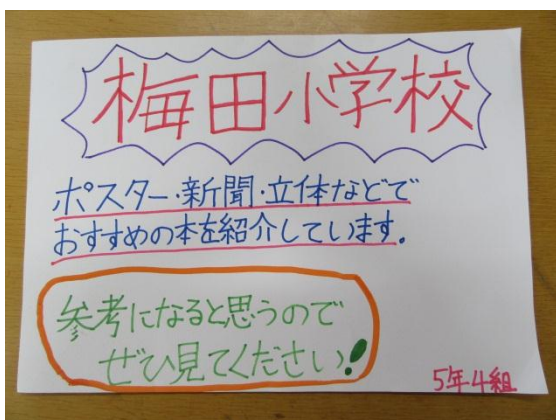 梅田小学校
ポスター・新聞・立体などで
おすすめの本を紹介しています。
参考になると思うので
ぜひ見てください!
5年4組